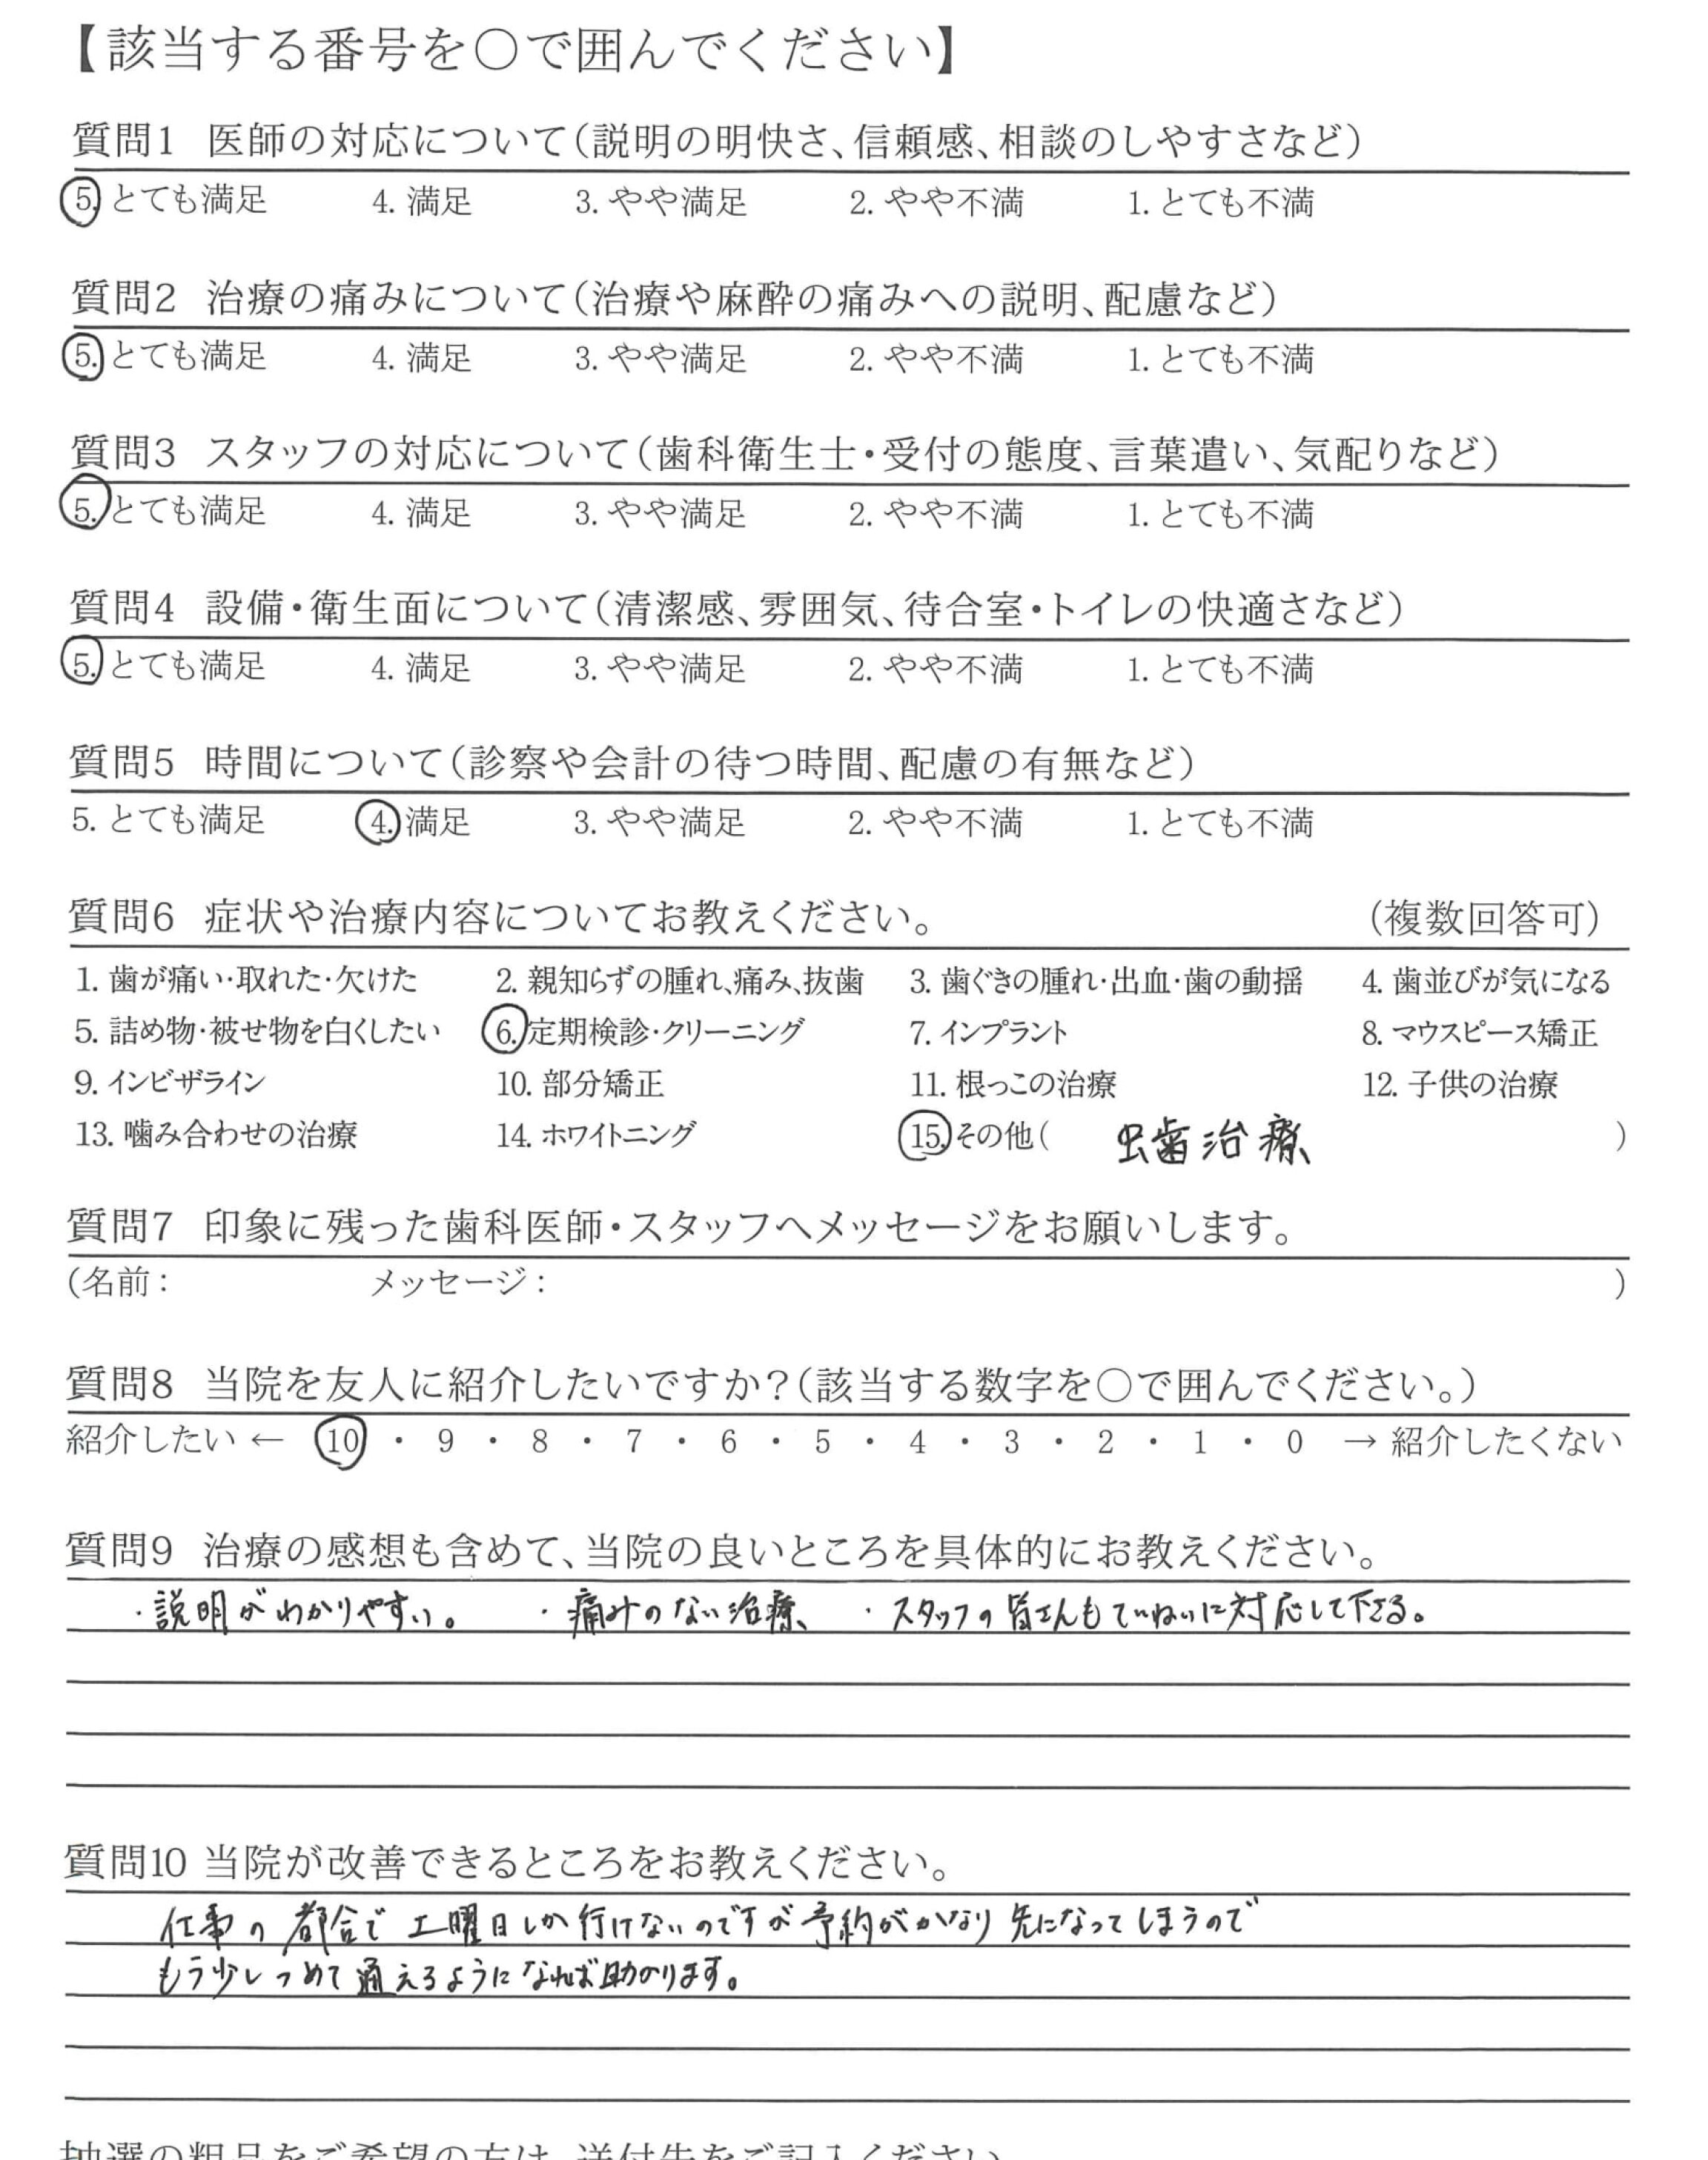 【該当する番号を〇で囲んでください】
質問1 医師の対応について(説明の明快さ、信頼感、相談のしやすさなど)
5. とても満足 4. 満足 3. やや満足 2. やや不満 1. とても不満
質問2 治療の痛みについて(治療や麻酔の痛みへの説明、配慮など)
5. とても満足 4. 満足 3. やや満足 2. やや不満 1. とても不満
質問3 スタッフの対応について(歯科衛生士・受付の態度、言葉遣い、気配りなど)
5. とても満足 4. 満足 3. やや満足 2. やや不満 1. とても不満
質問4 設備・衛生面について(清潔感、雰囲気、待合室・トイレの快適さなど)
5. とても満足 4. 満足 3. やや満足 2. やや不満 1. とても不満
質問5 時間について(診察や会計の待つ時間、配慮の有無など)
5. とても満足 4. 満足 3. やや満足 2. やや不満 1. とても不満
質問6 症状や治療内容についてお教えください。 (複数回答可)
1. 歯が痛い・取れた・欠けた 2. 親知らずの腫れ、痛み、抜歯 3. 歯ぐきの腫れ・出血・歯の動揺 4. 歯並びが気になる
5. 詰め物・被せ物を白くしたい 6. 定期検診・クリーニング 7. インプラント 8. マウスピース矯正
9. インビザライン 10. 部分矯正 11. 根っこの治療 12. 子供の治療
13. 噛み合わせの治療 14. ホワイトニング 15. その他( 虫歯治療 )
質問7 印象に残った歯科医師・スタッフへメッセージをお願いします。
(名前: メッセージ: )
質問8 当院を友人に紹介したいですか?(該当する数字を〇で囲んでください。)
紹介したい ← 10 ・ 9 ・ 8 ・ 7 ・ 6 ・ 5 ・ 4 ・ 3 ・ 2 ・ 1 ・ 0 → 紹介したくない
質問9 治療の感想も含めて、当院の良いところを具体的にお教えください。
・説明がわかりやすい。 ・痛みのない治療、 ・スタッフの皆さんもていねいに対応して下さる。
質問10 当院が改善できるところをお教えください。
仕事の都合で土曜日しか行けないのですが予約がかなり先になってしまうので
もう少しつめて通えるようになれば助かります。
抽選の粗品をご希望の方は、送付先をご記入ください